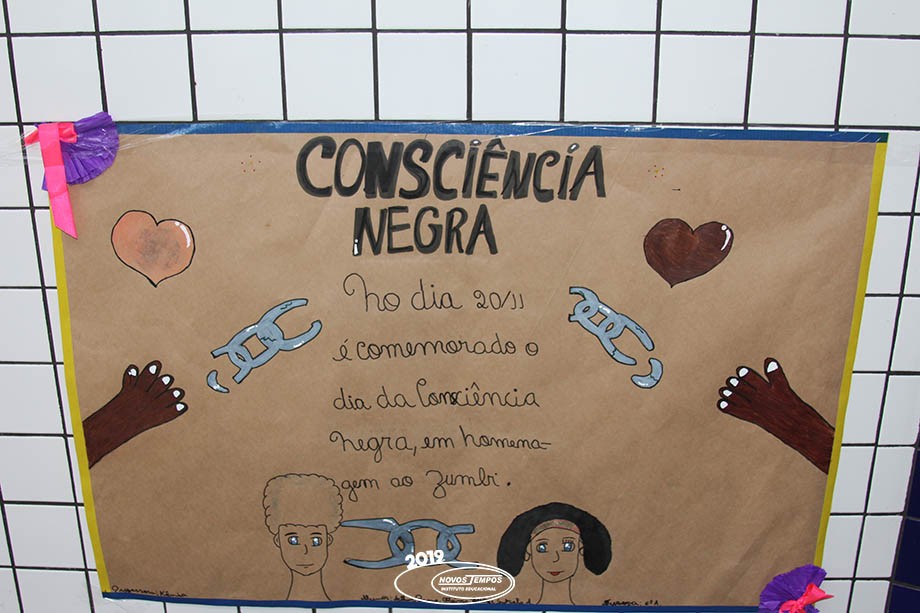 CONSCIÊNCIA
NEGRA
No dia 20/11
é comemorado o
dia da Consciência
negra, em homena-
gem ao Zumbi.
2019
NOVOS TEMPOS
INSTITUTO EDUCACIONAL